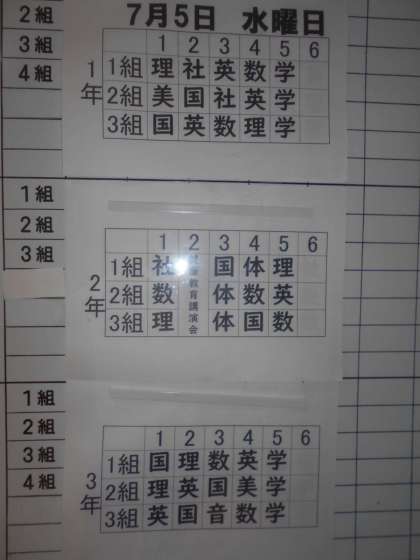 2組
3組
4組
7月5日 水曜日
1 2 3 4 5 6
1年
1組 理 社 英 数 学
2組 美 国 社 英 学
3組 国 英 数 理 学
1組
2組
3組
1 2 3 4 5 6
2年
1組 社 国 体 理
2組 数 体 数 英
3組 理 体 国 数
教育講演会
1組
2組
3組
4組
1 2 3 4 5 6
3年
1組 国 理 数 英 学
2組 理 英 国 美 学
3組 英 国 音 数 学